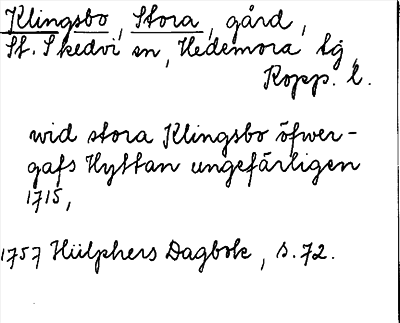 Klingsbo, Stora, gård,
St. Skedvi sn, Hedemora tg,
Kopp. l.
wid stora Klingsbo öfwer-
gafs Hyttan ungefärligen
1715,
1757 Hülphers Dagbok, s. 72.